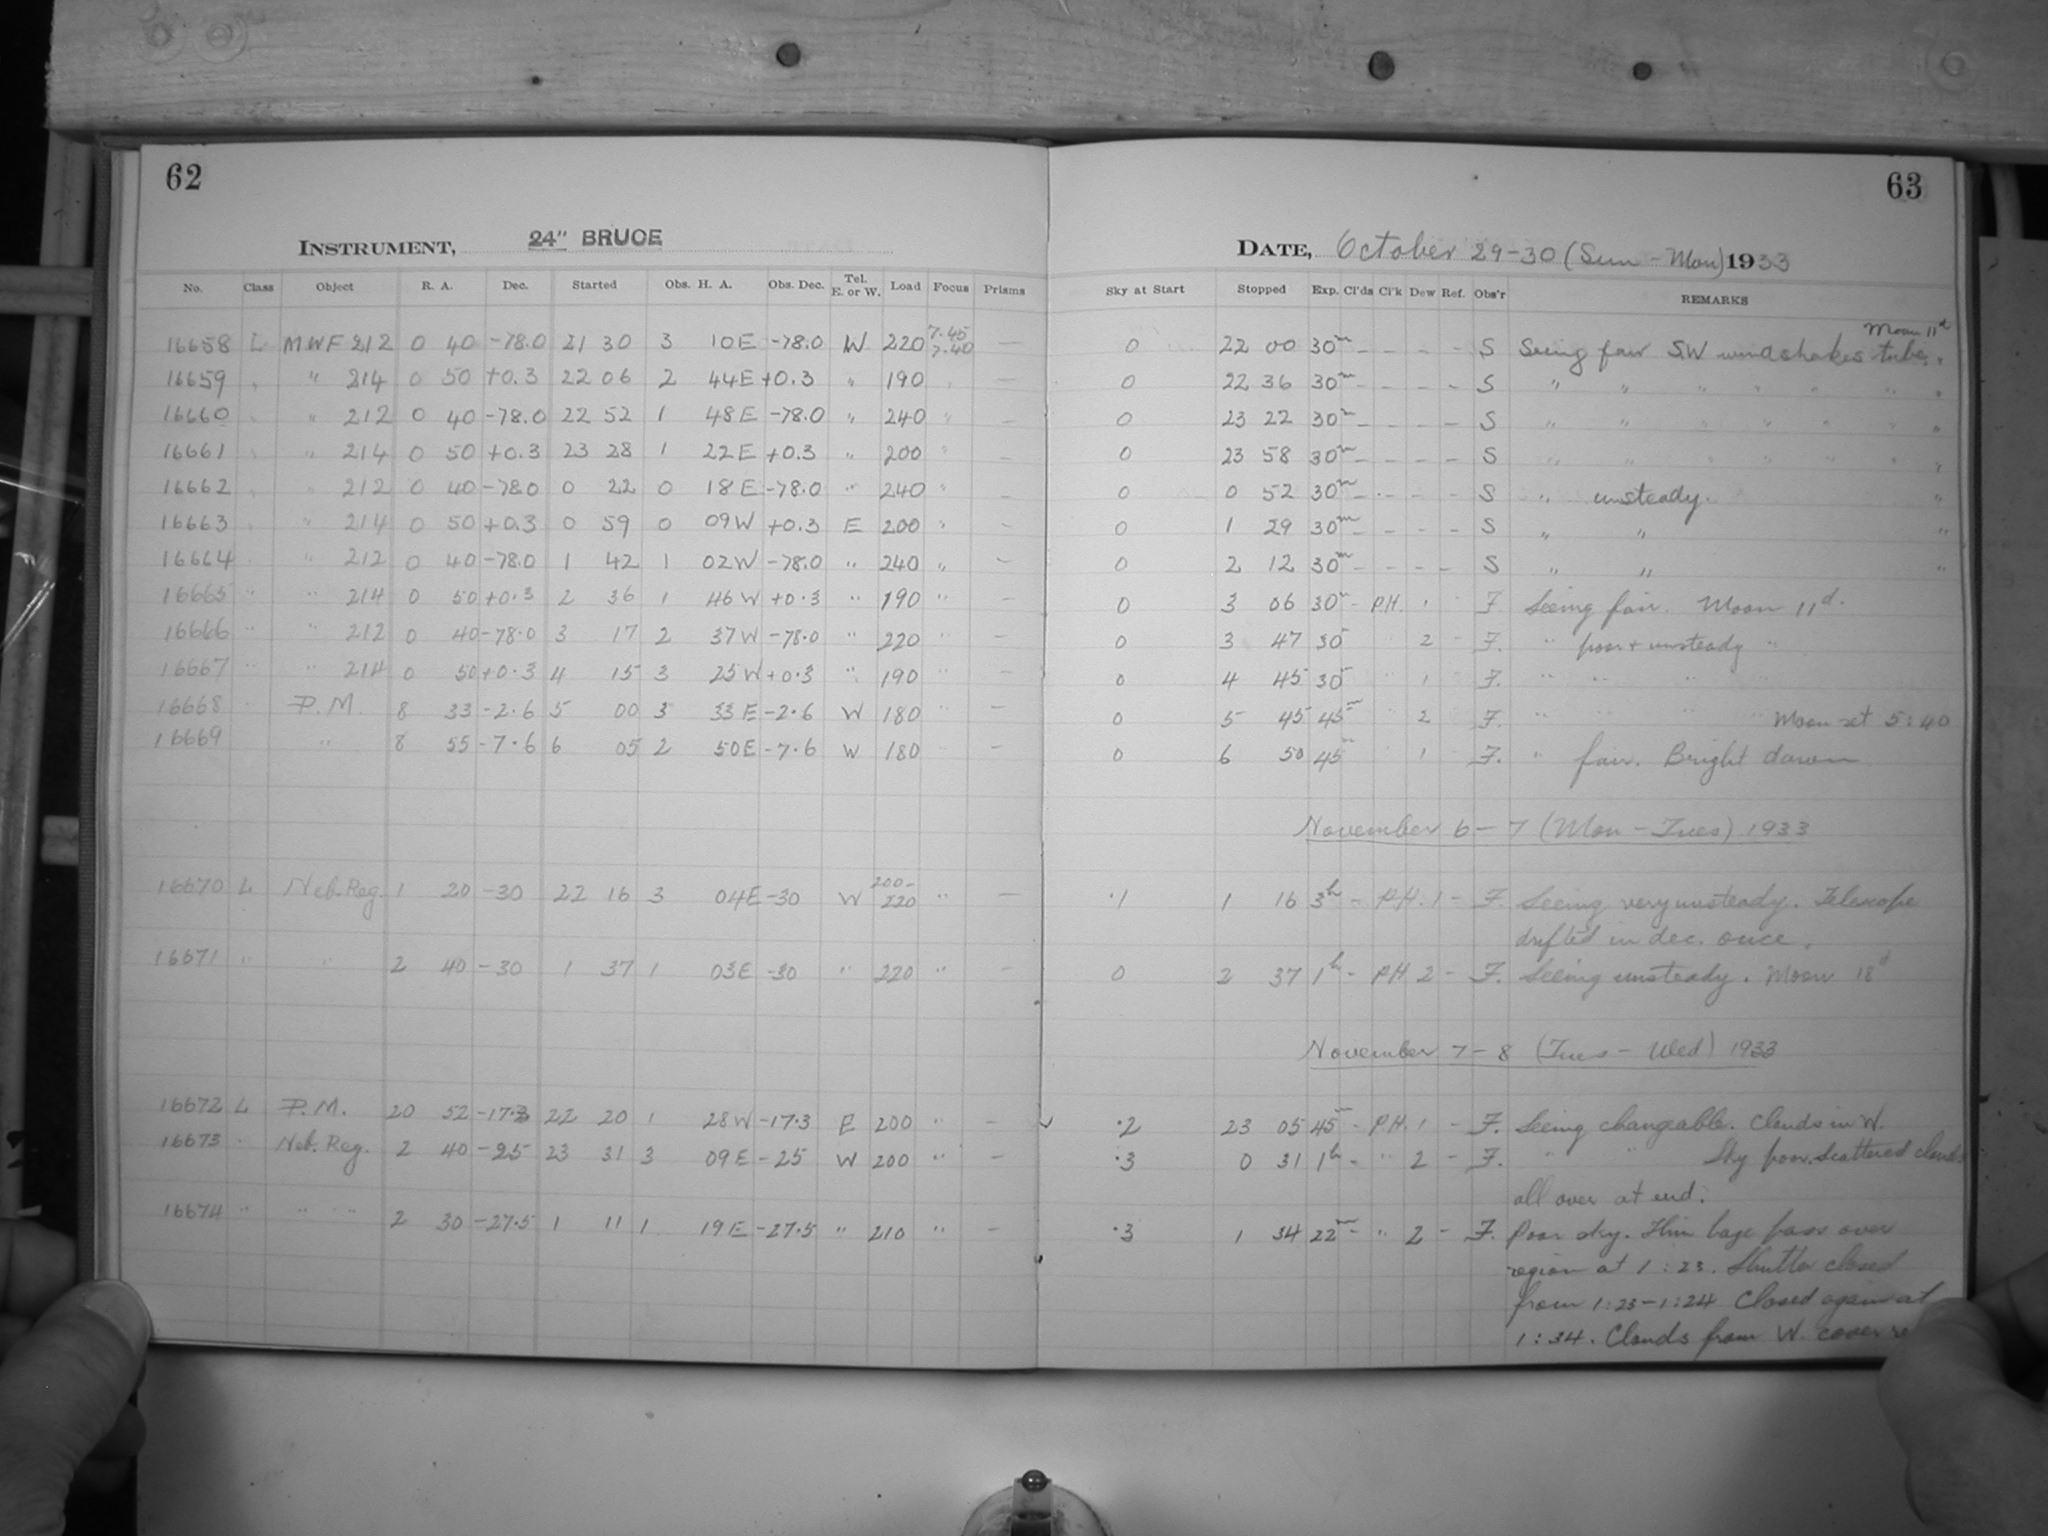 62
INSTRUMENT, 24" BRUCE
No. Class Object R. A. Dec. Started Obs. H. A. Obs. Dec. Tel. E. or W. Load Focus Prisms
16658 L MWF 212 0 40 -78.0 21 30 3 10E -78.0 W 220 7.45 7.40 —
16659 " " 214 0 50 +0.3 22 06 2 44E +0.3 " 190 " —
16660 " " 212 0 40 -78.0 22 52 1 48E -78.0 " 240 " —
16661 " " 214 0 50 +0.3 23 28 1 22E +0.3 " 200 " —
16662 " " 212 0 40 -78.0 0 22 0 18E -78.0 " 240 " —
16663 " " 214 0 50 +0.3 0 59 0 09W +0.3 E 200 " —
16664 " " 212 0 40 -78.0 1 42 1 02W -78.0 " 240 " —
16665 " " 214 0 50 +0.3 2 36 1 46W +0.3 " 190 " —
16666 " " 212 0 40 -78.0 3 17 2 37W -78.0 " 220 " —
16667 " " 214 0 50 +0.3 4 15 3 25W +0.3 " 190 " —
16668 " P.M. 8 33 -2.6 5 00 3 33E -2.6 W 180 " —
16669 " 8 55 -7.6 6 05 2 50E -7.6 W 180 " —
16670 L Neb. Reg. 1 20 -30 22 16 3 04E -30 W 200-220 " —
16671 " " 2 40 -30 1 37 1 03E -30 " 220 " —
16672 L P.M. 20 52 -17.3 22 20 1 28W -17.3 E 200 " —
16673 " Neb. Reg. 2 40 -25 23 31 3 09E -25 W 200 " —
16674 " " " 2 30 -27.5 1 11 1 19E -27.5 " 210 " —
63
DATE, October 29-30 (Sun - Mon) 1933
Sky at Start Stopped Exp. Cl'ds Cl'k Dew Ref. Obs'r REMARKS
Moon 11d
0 22 00 30m - - - - S Seeing fair SW wind shakes tube.
0 22 36 30m - - - - S " " " " " " "
0 23 22 30m - - - - S " " " " " " "
0 23 58 30m - - - - S " " " " " " "
0 0 52 30m - - - - S " unsteady. "
0 1 29 30m - - - - S " " "
0 2 12 30m - - - - S " " "
0 3 06 30m - P.H. 1 F. Seeing fair. Moon 11d.
0 3 47 30 " 2 - F. " poor + unsteady "
0 4 45 30 " 1 - F. " " "
0 5 45 45m " 2 F. " " " Moon set 5:40
0 6 50 45m 1 F. " fair. Bright dawn
November 6-7 (Mon - Tues) 1933
.1 1 16 3h - P.H. 1 - F. Seeing very unsteady. Telescope
drifted in dec. once.
0 2 37 1h - P.H. 2 - F. Seeing unsteady. Moon 18d
November 7-8 (Tues - Wed) 1933
.2 23 05 45m - P.H. 1 - F. Seeing changeable. Clouds in W.
.3 0 31 1h - " 2 - F. " " Sky poor. Scattered clouds
all over at end.
.3 1 34 22m - " 2 - F. Poor sky. Thin haze pass over
region at 1:23. Shutter closed
from 1:23-1:24 Closed again at
1:34. Clouds from W. cover